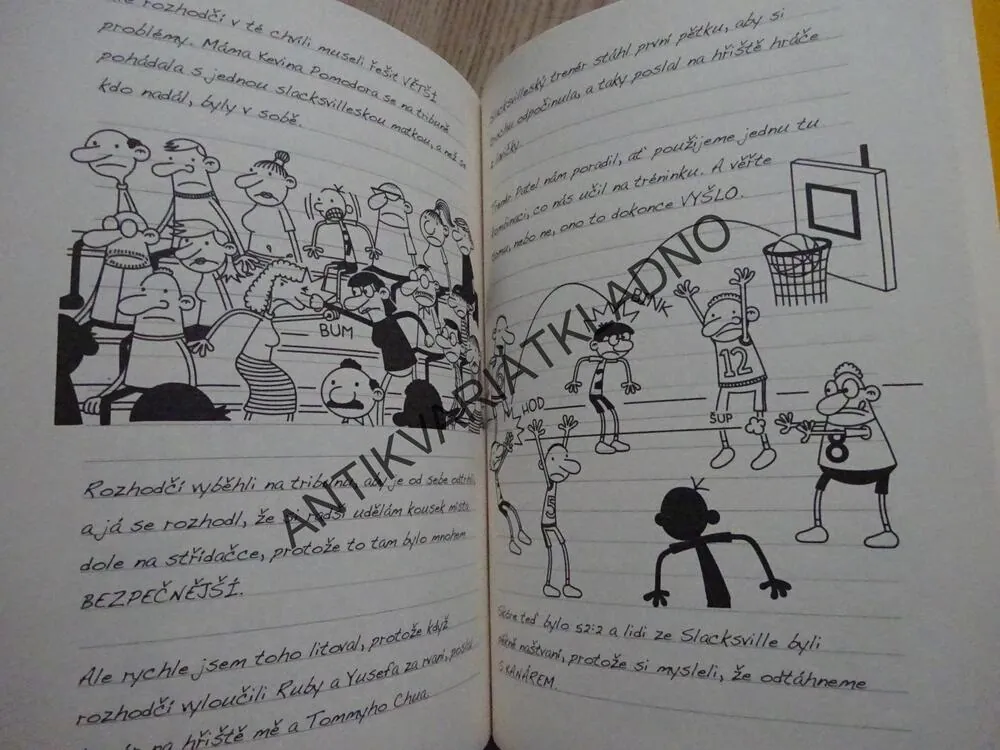 rozhodčí v té chvíli museli řešit VĚTŠÍ
problémy. Máma Kevina Pomodora se na tribuně
pohádala s jednou slacksvilleskou matkou, a než se
kdo nadál, byly v sobě.
BUM
Rozhodčí vyběhli na tribunu, aby je od sebe
a já se rozhodl, že si radši udělám kousek místa
dole na střídačce, protože to tam bylo mnohem
BEZPEČNĚJŠÍ.
Ale rychle jsem toho litoval, protože když
rozhodčí vyloučili Ruby a Yusefa za rvaní, poslal
na hřiště mě a Tommyho Chua
Slacksvilleský trenér stáhl první pětku, aby si
trochu odpočinula, a taky poslal na hřiště hráče
z lavičky.
Trenér Patel nám poradil, ať použijeme jednu tu
kombinaci, co nás učil na tréninku. A věřte
tomu, nebo ne, ono to dokonce VYŠLO.
HOD
ŠUP
12
5
8
Skóre teď bylo 52:2 a lidi ze Slacksville byli
pěkně naštvaní, protože si mysleli, že odtáhneme
S KANÁREM.
ANTIKVARIATKLADNO